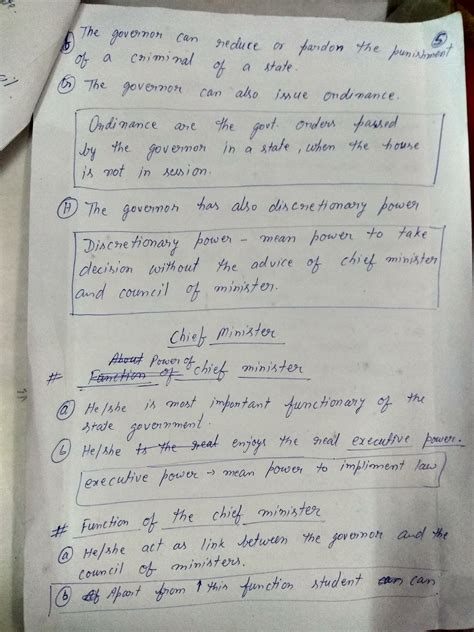 5
(f) The governor can reduce or pardon the punishment
of a criminal of a state.
(G) The governor can also issue ordinance.
Ordinance are the govt. orders passed
by the governor in a state, when the house
is not in session.
(H) The governor has also discretionary power
Discretionary power - mean power to take
decision without the advice of chief minister
and council of minister.
Chief Minister
About Power of
# Function of chief minister
(a) He/she is most important functionary of the
state government.
(b) He/she is the real enjoys the real executive power.
executive power → mean power to impliment law
# Function of the chief minister
(a) He/she act as link between the governor and the
council of ministers.
(b) Apart from ↑ this function student can can